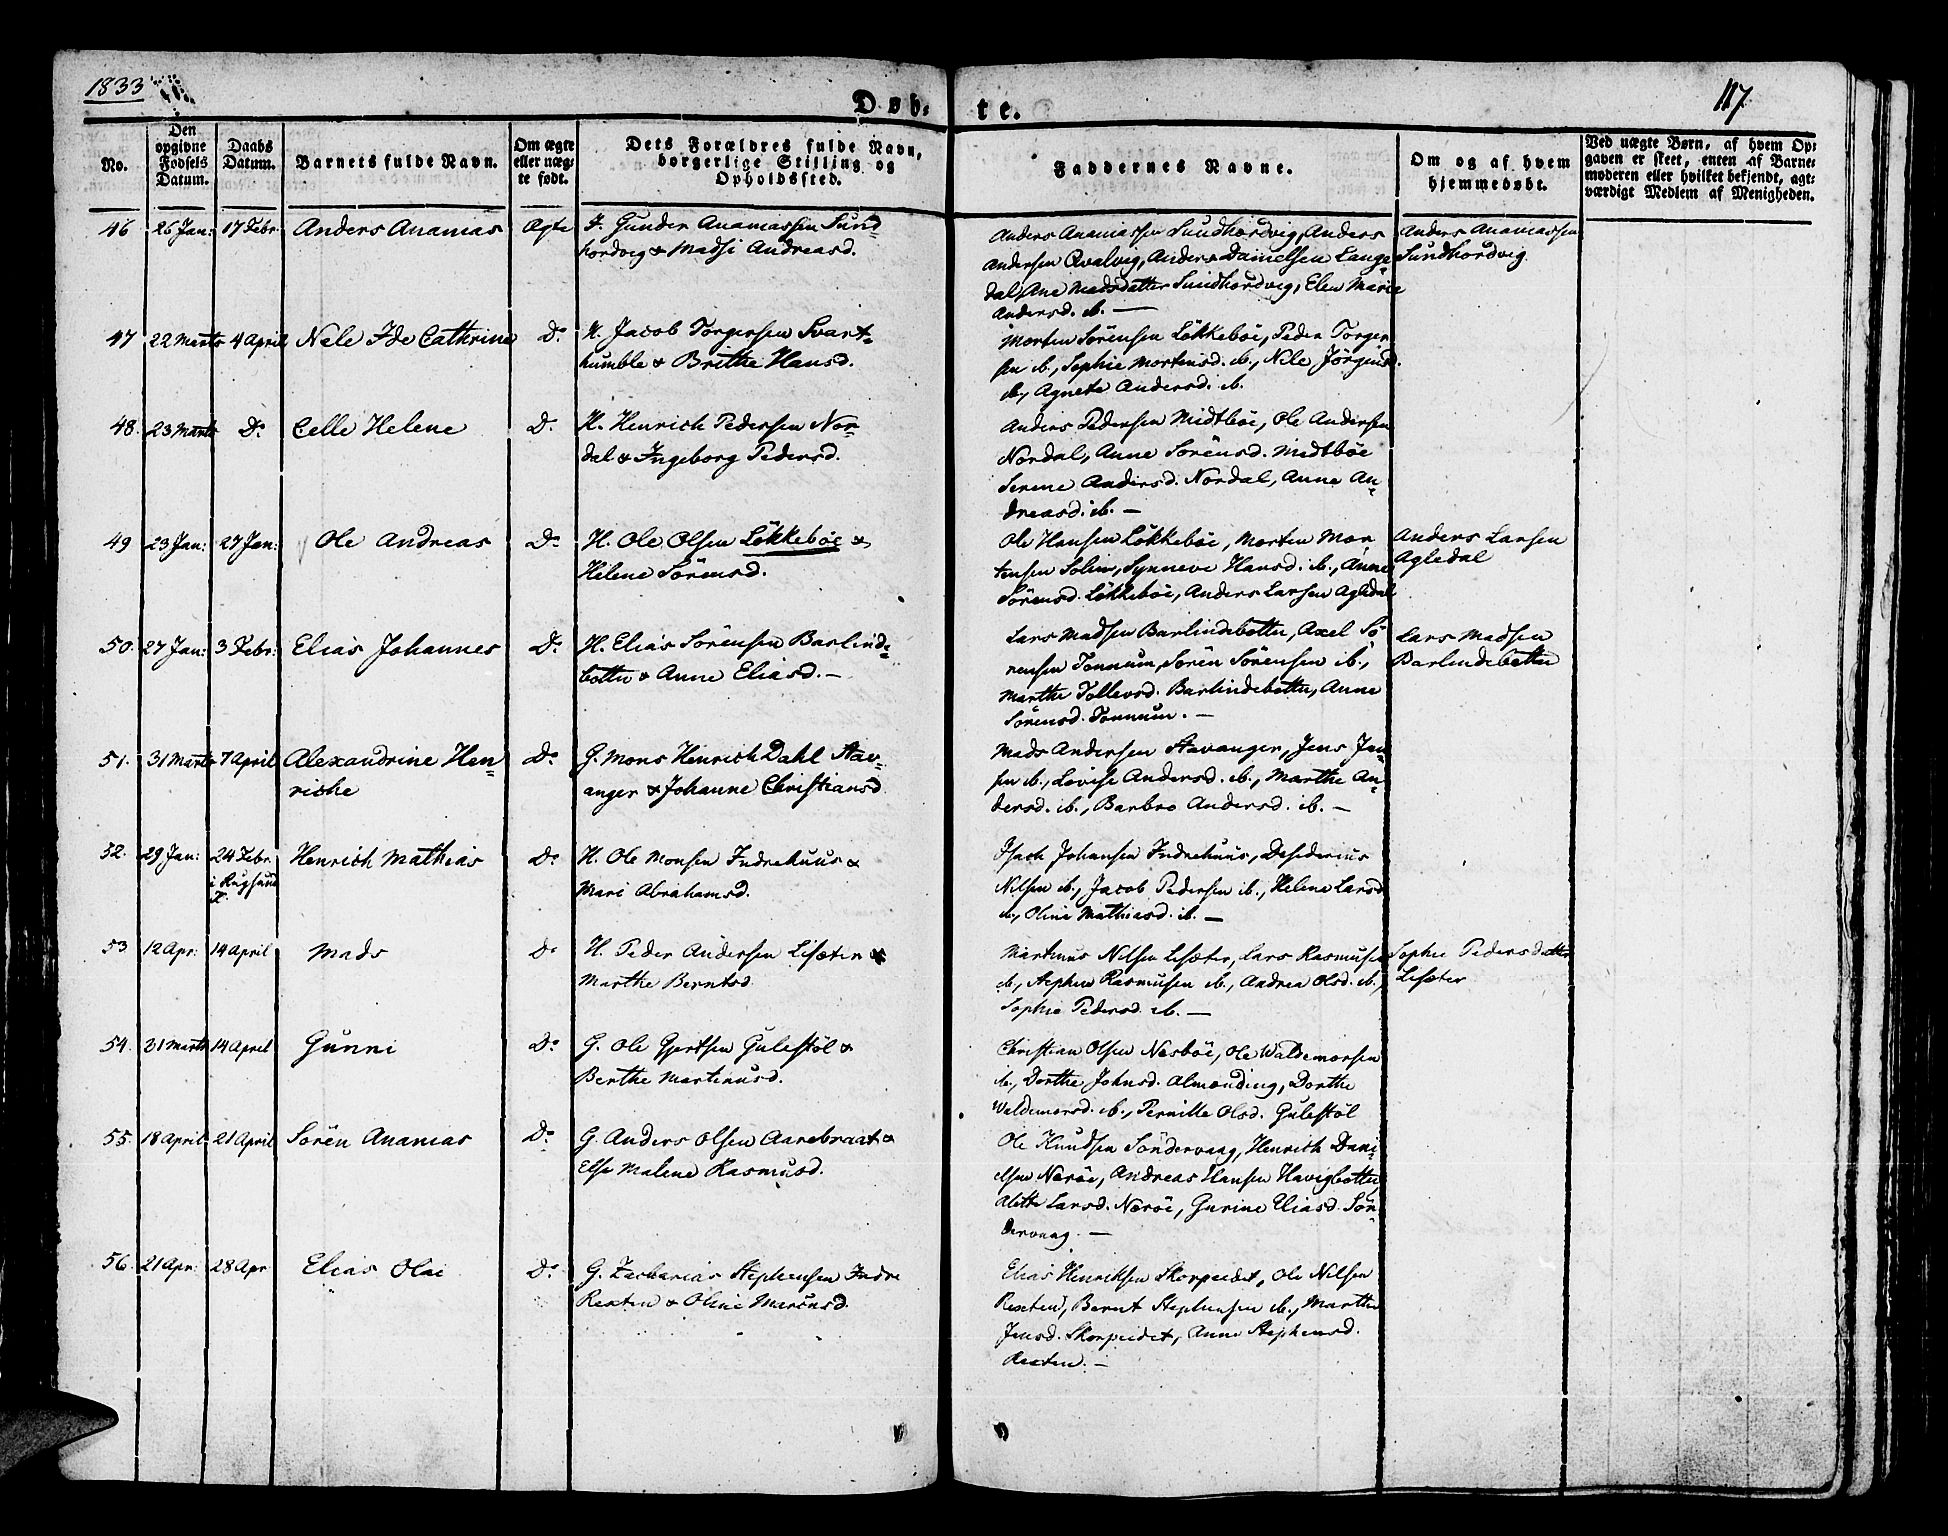 1833
117.
Døb-
te.
No.
Den opgivne Fødsels Datum.
Daabs Datum.
Barnets fulde Navn.
Om ægte eller uægte født.
Dets Forældres fulde Navn, borgerlige Stilling og Opholdssted.
Faddernes Navne.
Om og af hvem hjemmedøbt.
Ved uægte Børn, af hvem Opgaven er skeet, enten af Barnemoderen eller hvilket bekjendt, agtværdigt Medlem af Menigheden.
46 26 Jan: 17 Febr Anders Ananias Ægte
Gunder Ananiassen Sund-
hordvig & Madsi Andreasd.
Anders Ananiassen Sundhordvig, Anders
Andersen Qvalvig, Anders Danielsen Lange-
dal, Ane Madsdatter Sundhordvig, Elen Marie
Andersd. ib. —
Anders Ananiassen
Sundhordvig
47 22 Marts 4 April Nele Ide Cathrine Do
H. Jacob Torgersen Svart-
humble & Brithe Hansd.
Morten Sörensen Lökkeböe, Peder Torger-
sen ib., Sophie Mortensd. ib., Nele Jörgensd.
ib., Agnete Andersd. ib.
48. 23 Marts Do Celle Helene Do
H. Henrich Pedersen Nor-
dal & Ingeborg Pedersd.
Anders Pedersen Midtböe, Ole Andersen
Nordal, Anne Sörensd. Midtböe
Serene Andersd. Nordal, Anne An-
dreasd. ib. —
49 23 Jan: 27 Jan: Ole Andreas Do
H. Ole Olsen Lökkeböe &
Helene Sörensd.
Ole Hansen Lökkeböe, Morten Mor-
tensen Solem, Synneve Hansd. ib., Anne
Sörensd. Lökkeböe, Anders Larsen Agledal
Anders Larsen
Agledal
50. 27 Jan: 3 Febr: Elias Johannes Do
H. Elias Sörensen Barlinde-
botten & Anne Eliasd. —
Lars Madsen Barlindebotten, Axel Sö-
rensen Tonnum, Sören Sörensen ib.,
Marthe Tollevsd. Barlindebotten, Anne
Sörensd. Tonnum. —
Lars Madsen
Barlindebotten
51. 31 Marts 7 April Alexandrine Hen-
riche Do
G. Mons Henrich Dahl Stav-
anger & Johanne Christiansd
Mads Andersen Stavanger, Jens Jen-
sen ib., Lovise Andersd. ib., Marthe An-
dersd. ib., Barbro Andersd. ib. —
52. 29 Jan: 24 Febr.
i Rugsund
K. Henrich Mathias Do
H. Ole Monsen Indrehuus &
Mari Abrahamsd.
Isach Johansen Indrehuus, Desiderius
Nilsen ib., Jacob Pedersen ib., Helene Larsd
ib., Oline Mathiasd. ib. —
53 12 Apr: 14 April Mads Do
H. Peder Andersen Lisæter &
Marthe Berntsd.
Martinus Nilsen Lisæter, Lars Rasmusen
ib., Stephen Rasmusen ib., Andrea Olsd. ib.,
Sophie Pedersd. ib. —
Sophie Pedersdatter
Lisæter
54. 31 Marts 14 April Gunni Do
G. Ole Gjertsen Gulestöl &
Berthe Martinusd.
Christian Olsen Nesböe, Ole Waldemorsen
ib., Dorthe Johnsd. Almending, Dorthe
Waldemorsd. ib., Pernille Olsd. Gulestöl
55. 18 April 21 April Sören Ananias Do
G. Anders Olsen Aarebraat &
Else Malene Rasmusd.
Ole Knudsen Söndervaag, Henrich Dani-
elsen Neröe, Andreas Hansen Havigbotten,
Alette Larsd. Neröe, Gurine Eliasd. Sön-
dervaag. —
56. 21 Apr: 28 Apr Elias Olai Do
G. Zacharias Stephensen Indre
Rexten & Oline Maronsd.
Elias Henriksen Skorpeidet, Ole Nilsen
Rexten, Bernt Stephensen ib., Marthe
Jensd. Skorpeidet, Anne Stephensd.
Rexten. —